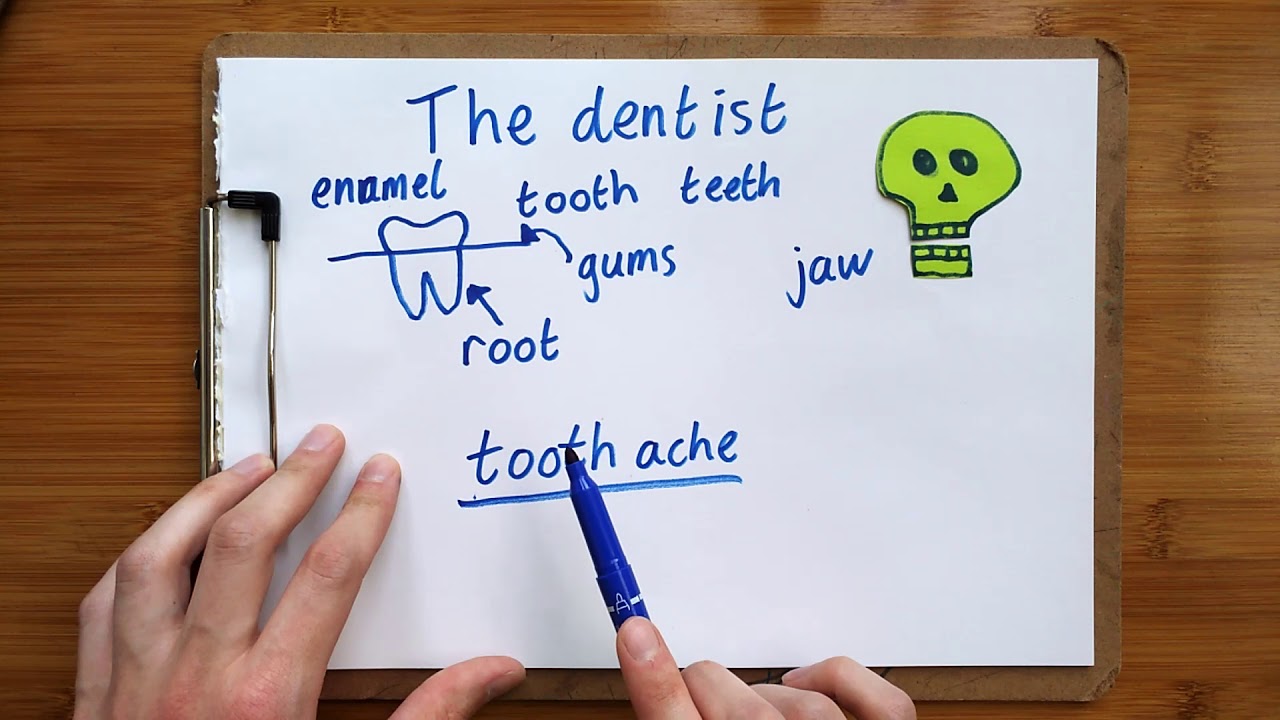 The dentist
enamel
tooth teeth
gums
jaw
root
tooth ache